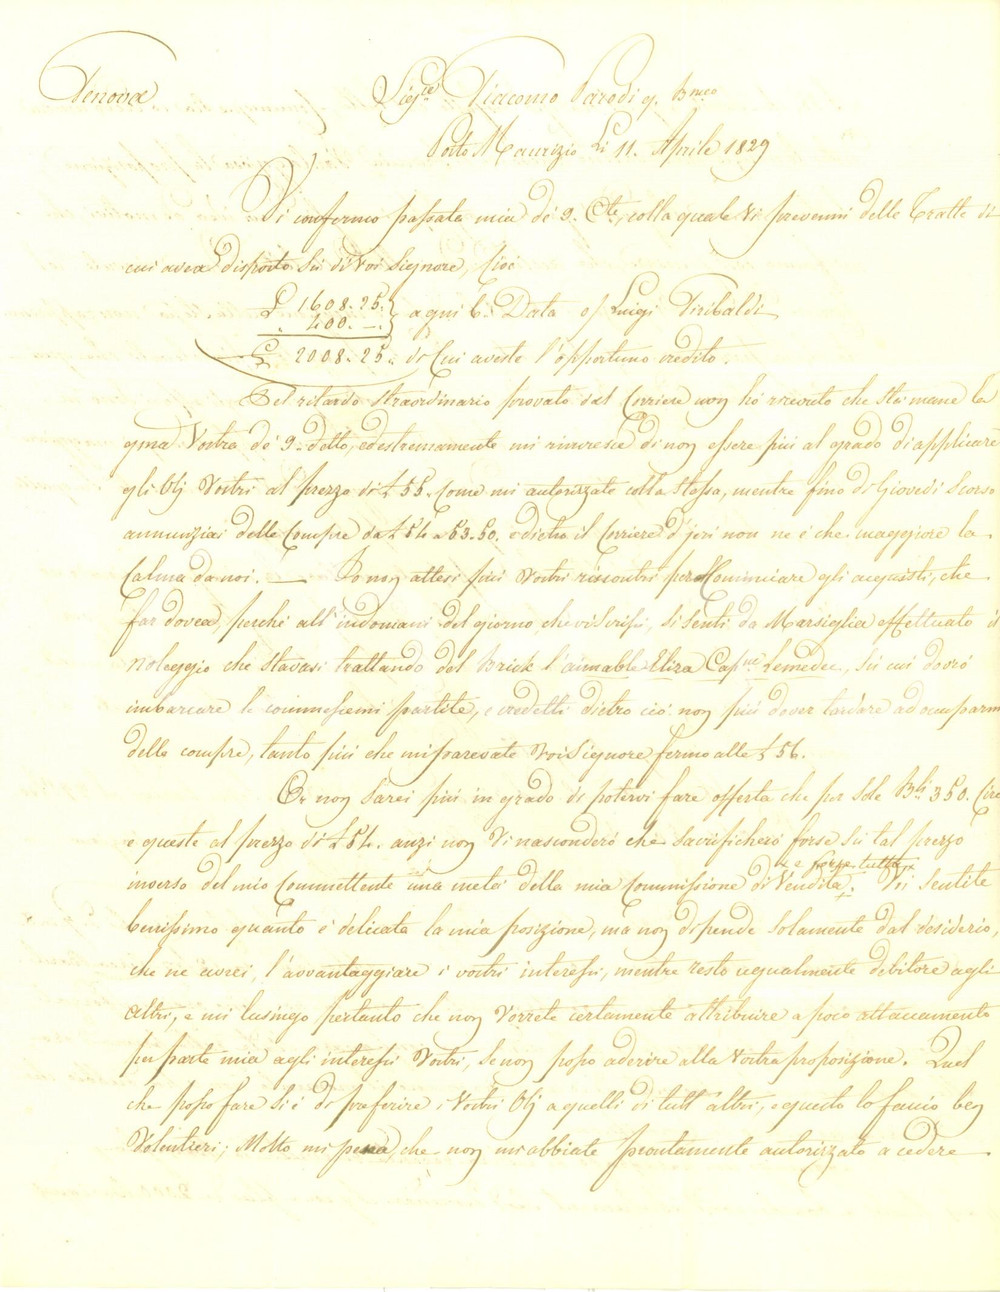 Genova
Sig.re Giacomo Parodi q. Bmeo
Porto Maurizio Li 11. Aprile 1829
Vi confermo passata mia de' 9. Cte, colla quale vi prevenni delle Tratte di
cui avea disposto Su di Voi Signore, Cioè
£ 1608.25.
" 400. —. } a gni 6. Data o/ Luigi Giribaldi
£ 2008.25. di Cui aveste l'opportuno credito.
Pel ritardo straordinario provato dal Corriere non hò ricevuto che sta mane la
gma Vostra de' 9. detto, ed estremamente mi rincresce di non essere più al grado di applicare
gli Olj Vostri al prezzo di £ 55. Come mi autorizzate colla stessa, mentre fino di Giovedì Scorso
annunziai delle Compre da £ 54 a 53.50. e dietro il Corriere d'jeri non ne è che maggiore la
Calma da noi. — Io non attesi più vostri riscontri per Cominciare gli acquisti, che
far dovea, perchè all'indomani del giorno, che vi Scrissi, si sentì da Marsiglia effettuato il
noleggio che stavasi trattando del Brick l'aimable Eliza Cap.ne Lemedec, su cui dovrò
imbarcare le commessemi partite, e credetti dietro ciò non più dover tardare ad occuparmi
delle compre, tanto più che mi paravate Voi Signore fermo alle £ 56.
Or non Sarei più in grado di potervi fare offerta che per sole Bli 350. Circa
e queste al prezzo di £ 54. anzi non Vi nasconderò che sacrificherò forse su tal prezzo
inverso del mio Committente una metà della mia Commissione di Vendita + e forse tutta. Voi Sentite
benissimo quanto è delicata la mia posizione, ma non dipende solamente dal desiderio,
che ne avrei, l'avvantaggiare i vostri interessi, mentre resto ugualmente debitore agli
altri, e mi lusingo pertanto che non Vorrete certamente attribuire a poco attaccamento
per parte mia agli interessi Vostri, se non posso aderire alla Vostra proposizione. Quel
che posso fare si è di preferire i Vostri Olj a quelli di tutt'altri, e questo lo faccio ben
Volentieri; Molto mi pena che non mi abbiate prontamente autorizzato a cedere